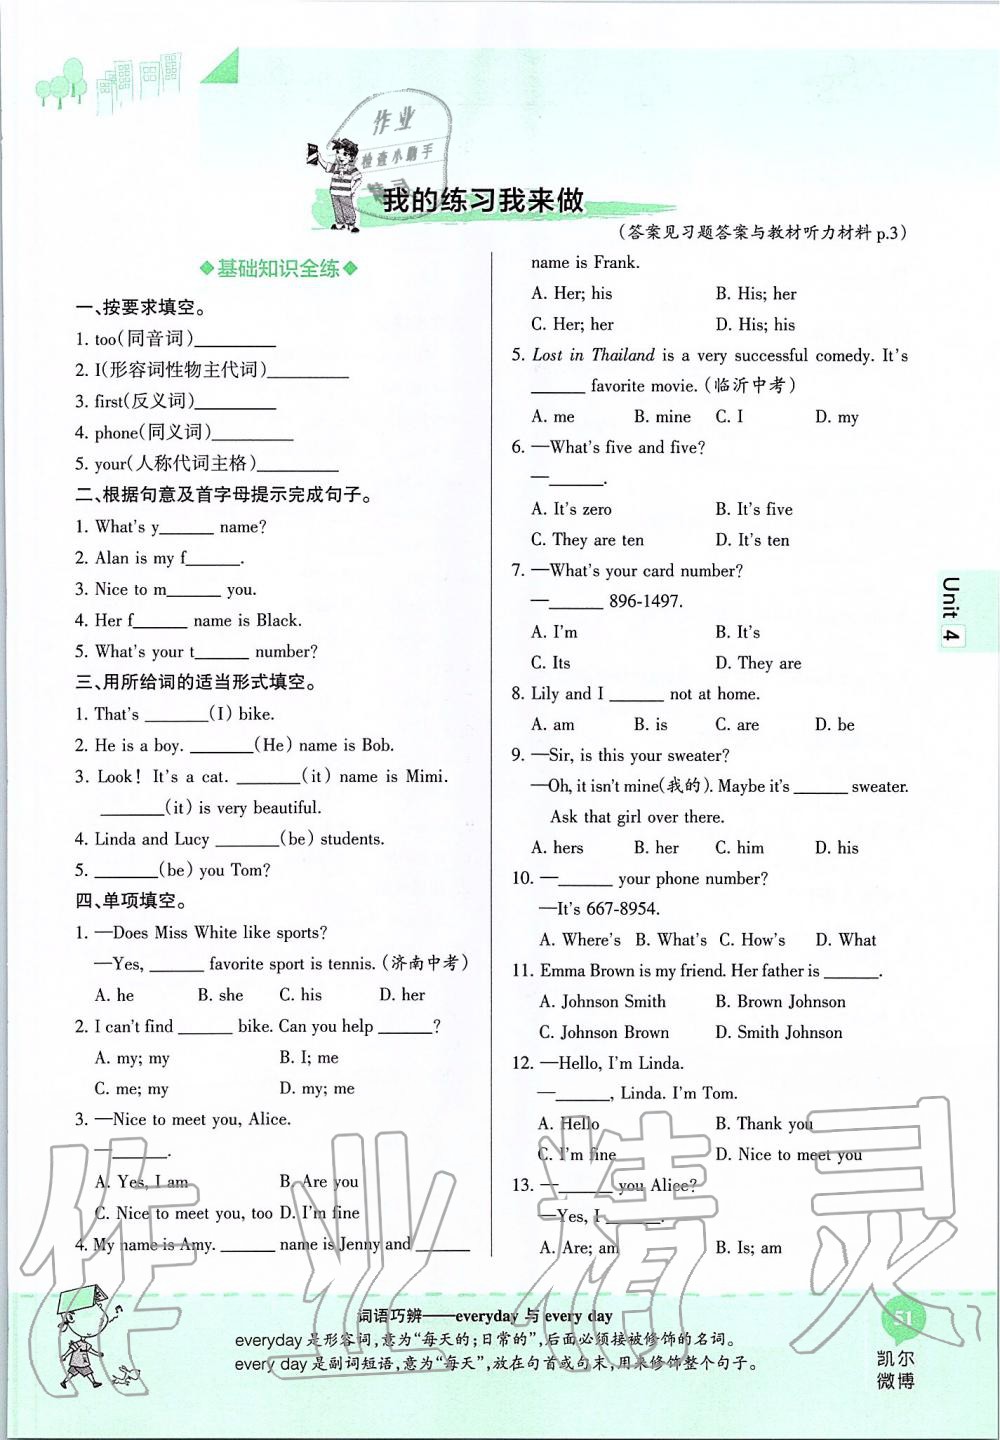 作业
检查小助手
精灵
我的练习我来做
(答案见习题答案与教材听力材料 p.3)
◆基础知识全练◆
一、按要求填空。
1. too(同音词)________
2. I(形容词性物主代词)________
3. first(反义词)________
4. phone(同义词)________
5. your(人称代词主格)________
二、根据句意及首字母提示完成句子。
1. What's y______ name?
2. Alan is my f______.
3. Nice to m______ you.
4. Her f______ name is Black.
5. What's your t______ number?
三、用所给词的适当形式填空。
1. That's _______(I) bike.
2. He is a boy. _______(He) name is Bob.
3. Look! It's a cat. _______(it) name is Mimi.
_______(it) is very beautiful.
4. Linda and Lucy _______(be) students.
5. _______(be) you Tom?
四、单项填空。
1. —Does Miss White like sports?
—Yes, ______ favorite sport is tennis. (济南中考)
A. he B. she C. his D. her
2. I can't find ______ bike. Can you help ______?
A. my; my B. I; me
C. me; my D. my; me
3. —Nice to meet you, Alice.
—______.
A. Yes, I am B. Are you
C. Nice to meet you, too D. I'm fine
4. My name is Amy. ______ name is Jenny and ______
name is Frank.
A. Her; his B. His; her
C. Her; her D. His; his
5. Lost in Thailand is a very successful comedy. It's
______ favorite movie. (临沂中考)
A. me B. mine C. I D. my
6. —What's five and five?
—______.
A. It's zero B. It's five
C. They are ten D. It's ten
7. —What's your card number?
—______ 896-1497.
A. I'm B. It's
C. Its D. They are
8. Lily and I ______ not at home.
A. am B. is C. are D. be
9. —Sir, is this your sweater?
—Oh, it isn't mine(我的). Maybe it's ______ sweater.
Ask that girl over there.
A. hers B. her C. him D. his
10. —______ your phone number?
—It's 667-8954.
A. Where's B. What's C. How's D. What
11. Emma Brown is my friend. Her father is ______.
A. Johnson Smith B. Brown Johnson
C. Johnson Brown D. Smith Johnson
12. —Hello, I'm Linda.
—______, Linda. I'm Tom.
A. Hello B. Thank you
C. I'm fine D. Nice to meet you
13. —______ you Alice?
—Yes, I ______.
A. Are; am B. Is; am
Unit 4
作业精灵
词语巧辨——everyday 与 every day
everyday 是形容词,意为“每天的;日常的”,后面必须接被修饰的名词。
every day 是副词短语,意为“每天”,放在句首或句末,用来修饰整个句子。
51
凯尔
微博